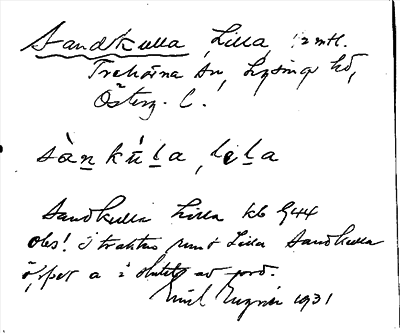 Sandkulla, Lilla, 1/2 mtl.
Trehörna sn, Lysings hd,
Österg. l.
sànkúla, lıla
Sandkulla Lilla kb 944
obs! i trakten runt Lilla Sandkulla
öppet a i slutet av ord.
Emil 1931